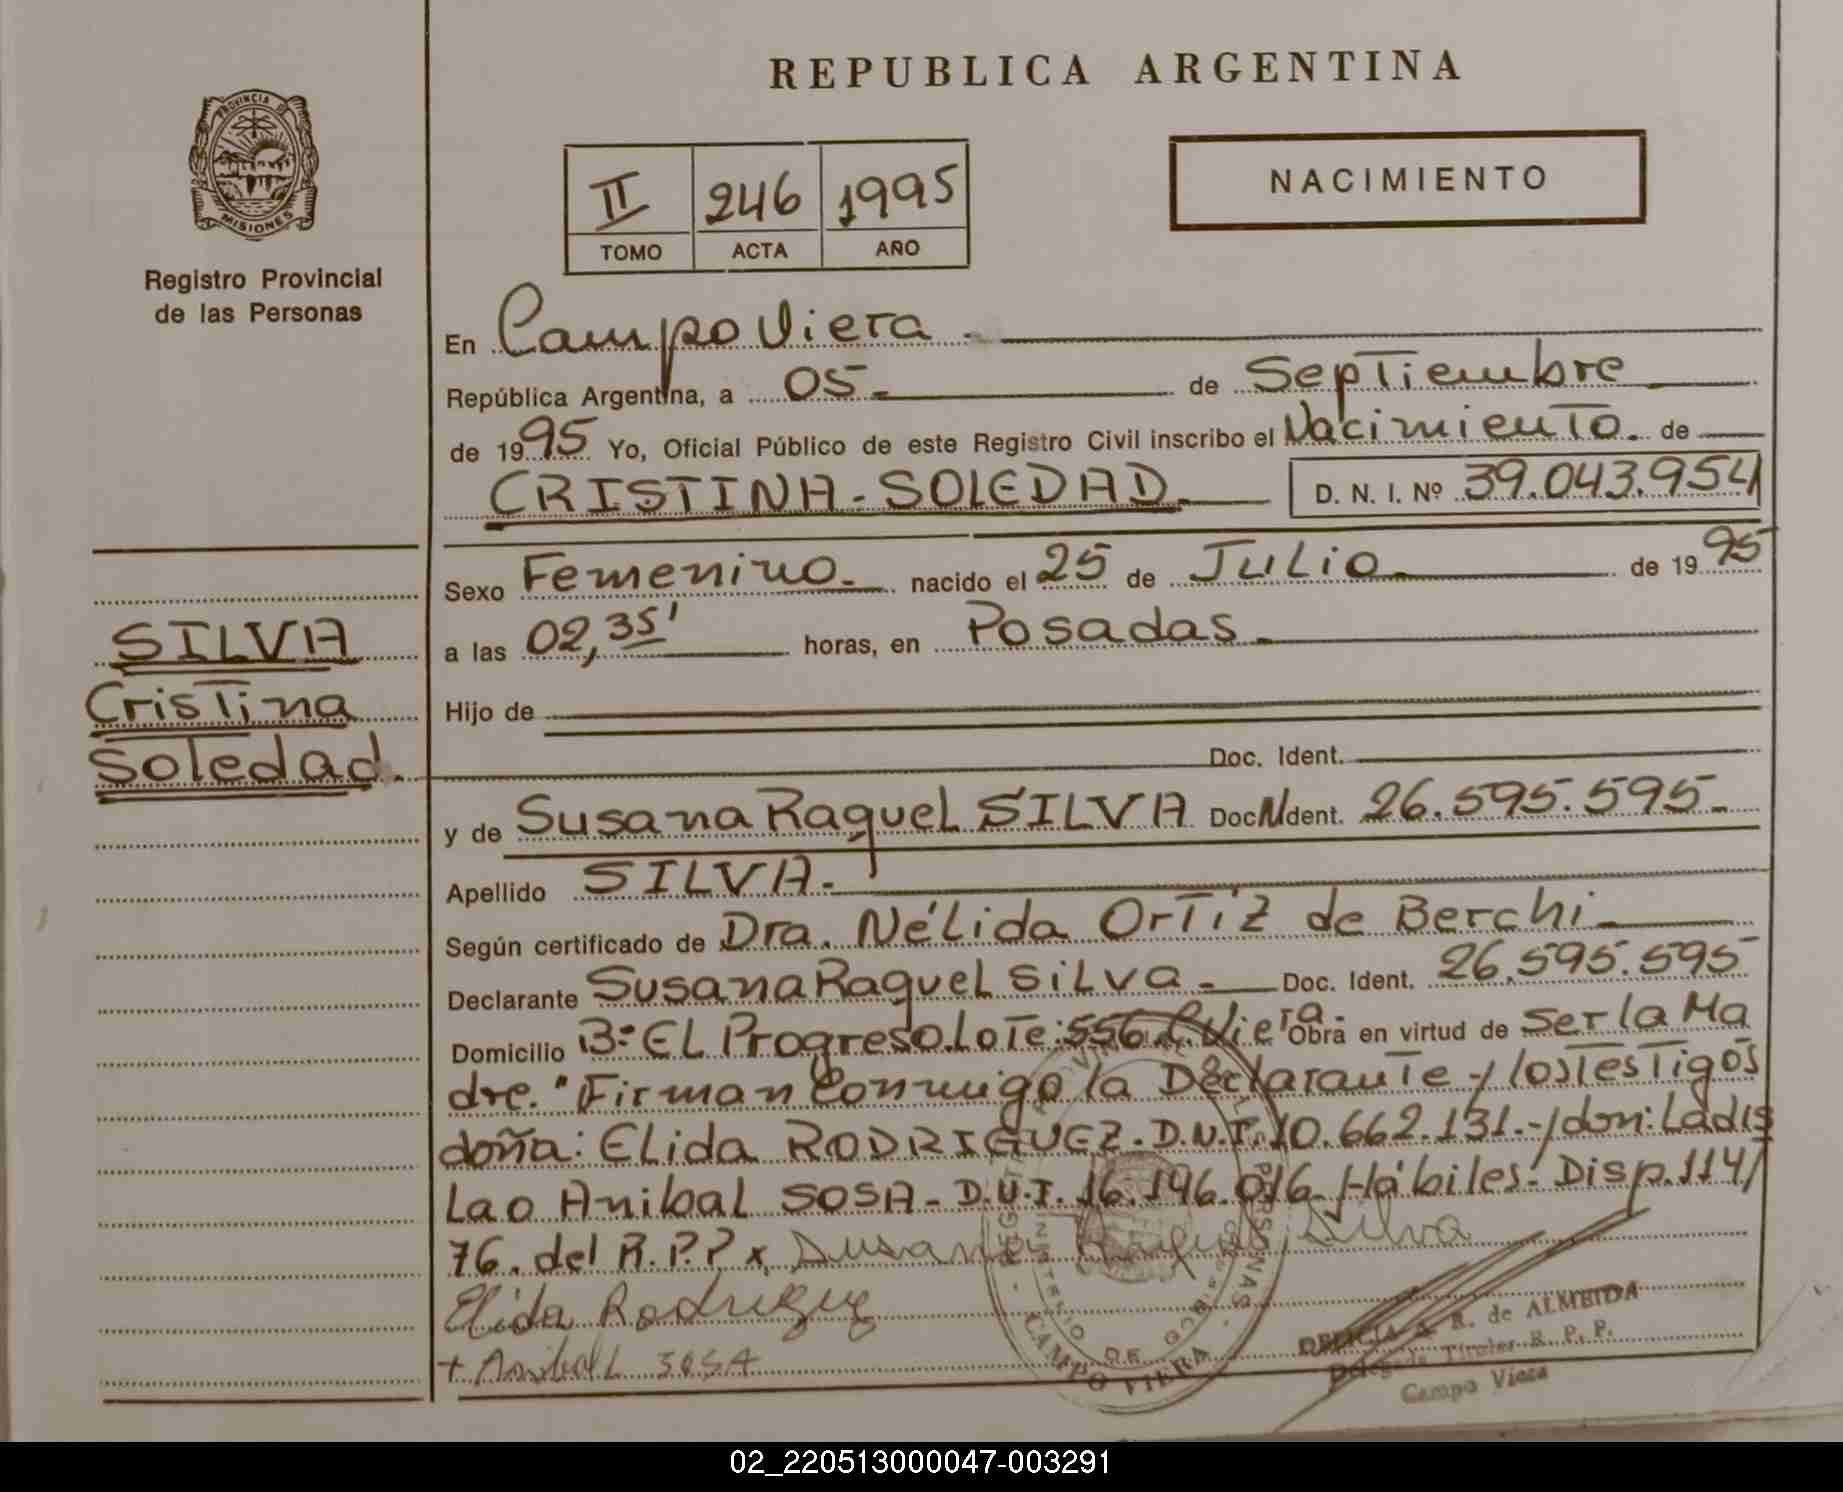 REPUBLICA ARGENTINA
PROVINCIA DE
MISIONES
Registro Provincial
de las Personas
II 246 1995
TOMO ACTA AÑO
NACIMIENTO
En Campo Viera.
República Argentina, a 05 de Septiembre
de 1995 Yo, Oficial Público de este Registro Civil inscribo el Nacimiento. de
CRISTINA-SOLEDAD D. N. I. Nº 39.043.954
Sexo Femenino. nacido el 25 de Julio de 1995
a las 02,35' horas, en Posadas
Hijo de
Doc. Ident.
SILVA
Cristina
Soledad.
y de Susana Raquel SILVA Doc Ident. 26.595.595
Apellido SILVA.
Según certificado de Dra. Nélida Ortiz de Berchi
Declarante Susana Raquel Silva Doc. Ident. 26.595.595
Domicilio Bº EL Progreso.Lote:556 C.Viera. Obra en virtud de Ser la Ma
dre." Firman Conmigo la Declarante-/ los Testigos
doña: Elida RODRIGUEZ. D.N.I. 10.662.131.-/ don: Ladis
Lao Anibal SOSA- D.N.I. 16.196.016 Hábiles. Disp.114/
76. del R.P.P x Susana Raquel Silva
Elida Rodriguez
+ Anibal L SOSA
CAMPO VIERA
R. de ALMEIDA
Delegada Titular R. P. P.
Campo Viera
02_220513000047-003291